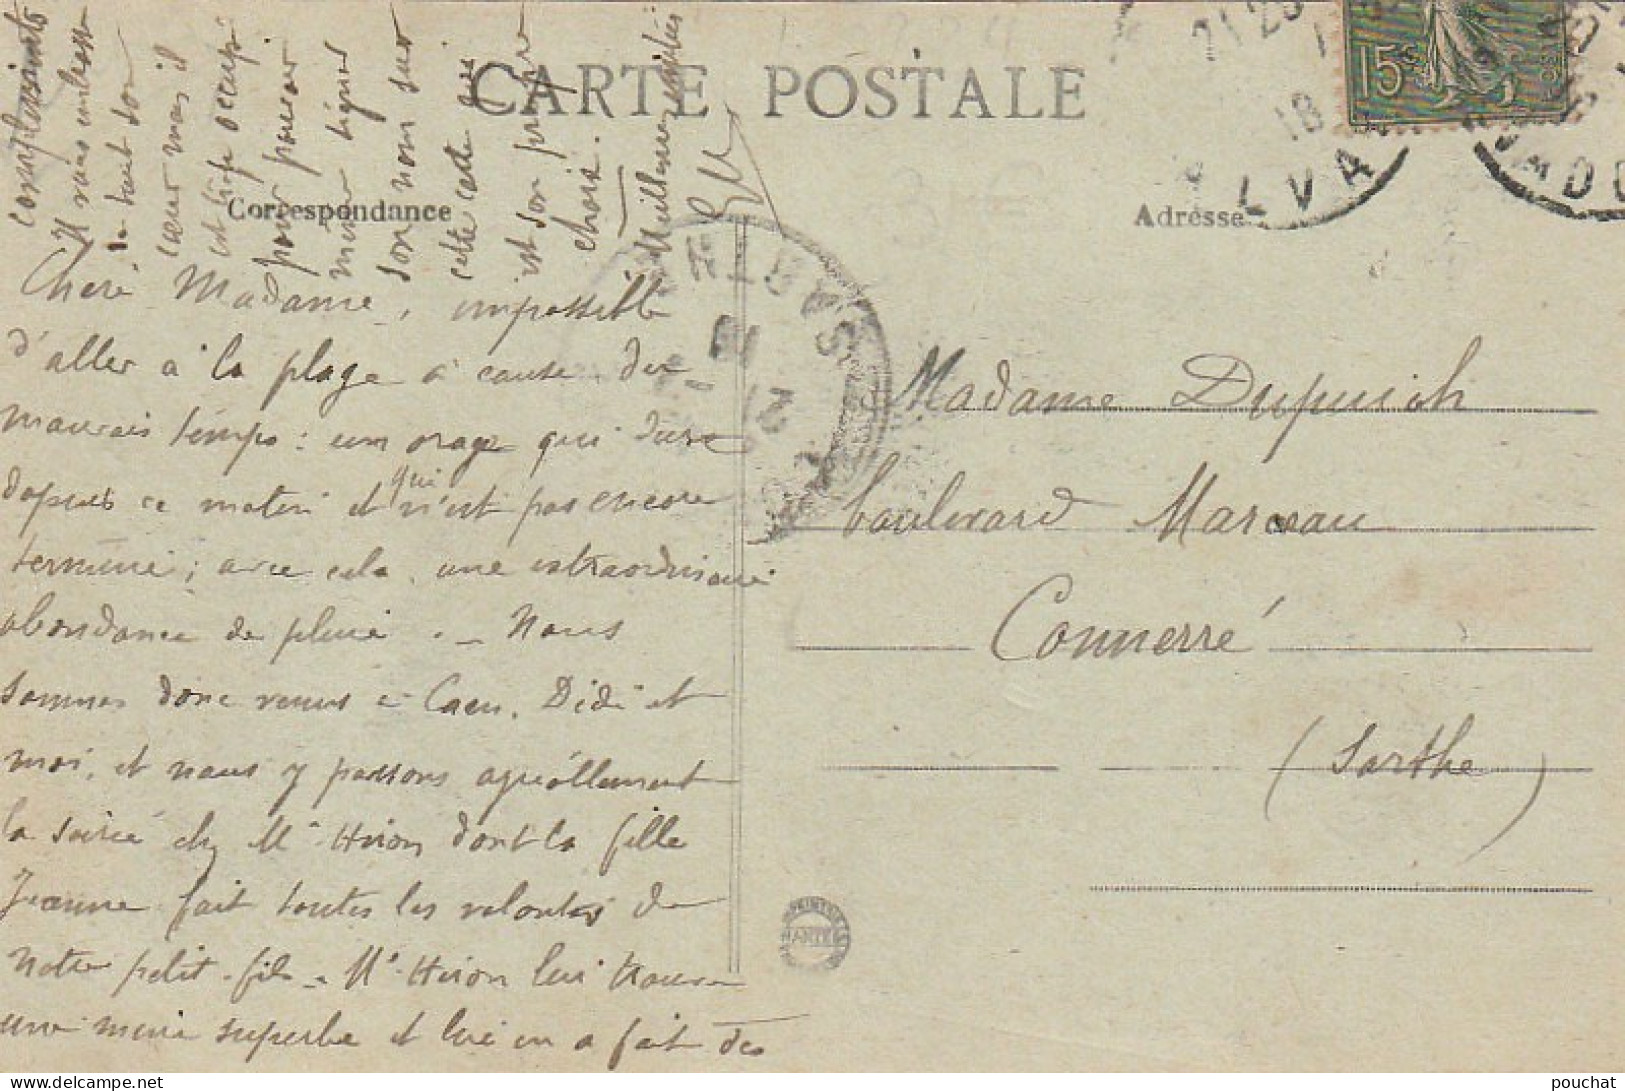 CARTE POSTALE
Correspondance
Adresse
15c
CALVADOS
Chère Madame, impossible
d'aller à la plage à cause du
mauvais temps : un orage qui dure
depuis ce matin et qui n'est pas encore
terminé ; avec cela, une extraordinaire
abondance de pluie. - Nous
sommes donc venus à Caen, Didi et
moi, et nous y passons agréablement
la soirée chez Mr Huron dont la fille
Jeanne fait toutes les volontés de
notre petit-fils - Mr Huron lui trouve
une mine superbe et lui en a fait des
compliments
Il vous embrasse
de tout son
cœur mais il
est trop occupé
pour pouvoir
même signer
son nom sur
cette carte qui
est son propre
choix.
Meilleures amitiés
Madame Dupuich
boulevard Marceau
Connerré
(Sarthe)
IMPRIMERIES
NANTES
pouchat